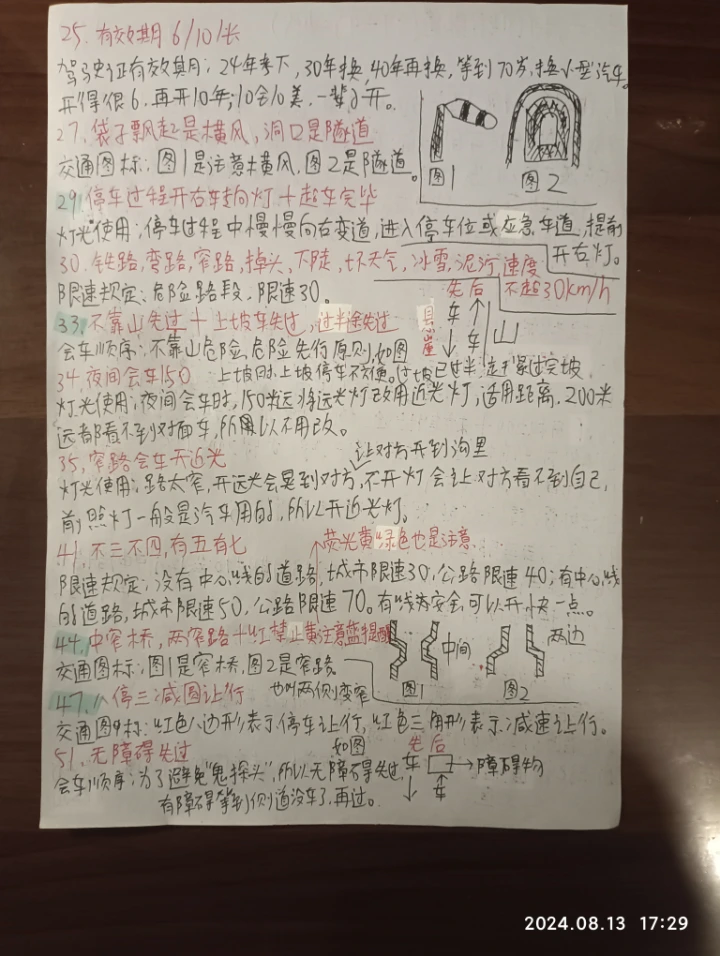 25. 有效期 6/10/长
驾驶证有效期：24年考下，30年换，40年再换，等到70岁，换小型汽车。
开得很6，再开10年；10全10美，一辈子开。
27. 袋子飘起是横风，洞口是隧道
交通图标：图1是注意横风，图2是隧道。
图1
图2
29. 停车过程开右转向灯＋超车完毕
灯光使用：停车过程中慢慢向右变道，进入停车位或应急车道，提前
开右灯。
30. 铁路，弯路，窄路，掉头，下陡，坏天气，冰雪，泥泞速度
不超30km/h
限速规定：危险路段，限速30。
33. 不靠山先过＋上坡车先过，过半途先过
会车顺序：不靠山危险，危险先行原则，如图
先 后
悬崖
车
车
山
上坡时，上坡停车不方便。下坡已过半，赶紧过完坡
34. 夜间会车150
灯光使用：夜间会车时，150米远将远光灯改用近光灯，适用距离，200米
远都看不到对面车，所以不用改。
35. 窄路会车开近光
让对方开到沟里
灯光使用：路太窄，开远光会晃到对方，不开灯会让对方看不到自己，
前照灯一般是汽车用的，所以开近光灯。
41. 不三不四，有五有七
荧光黄绿色也是注意
限速规定：没有中心线的道路，城市限速30，公路限速40；有中心线
的道路，城市限速50，公路限速70。有线为安全，可以开快一点。
44. 中窄桥，两窄路＋红禁止黄注意蓝提醒
中间
两边
图1
图2
交通图标：图1是窄桥，图2是窄路。
也叫两侧变窄
47. 八停三减圆让行
交通图标：红色八边形表示停车让行，红色三角形表示减速让行。
51. 无障碍先过
如图
先 后
会车顺序：为了避免"鬼探头"，所以无障碍先过，
车
车
障碍物
有障碍等到侧道没车了，再过。
2024.08.13 17:29